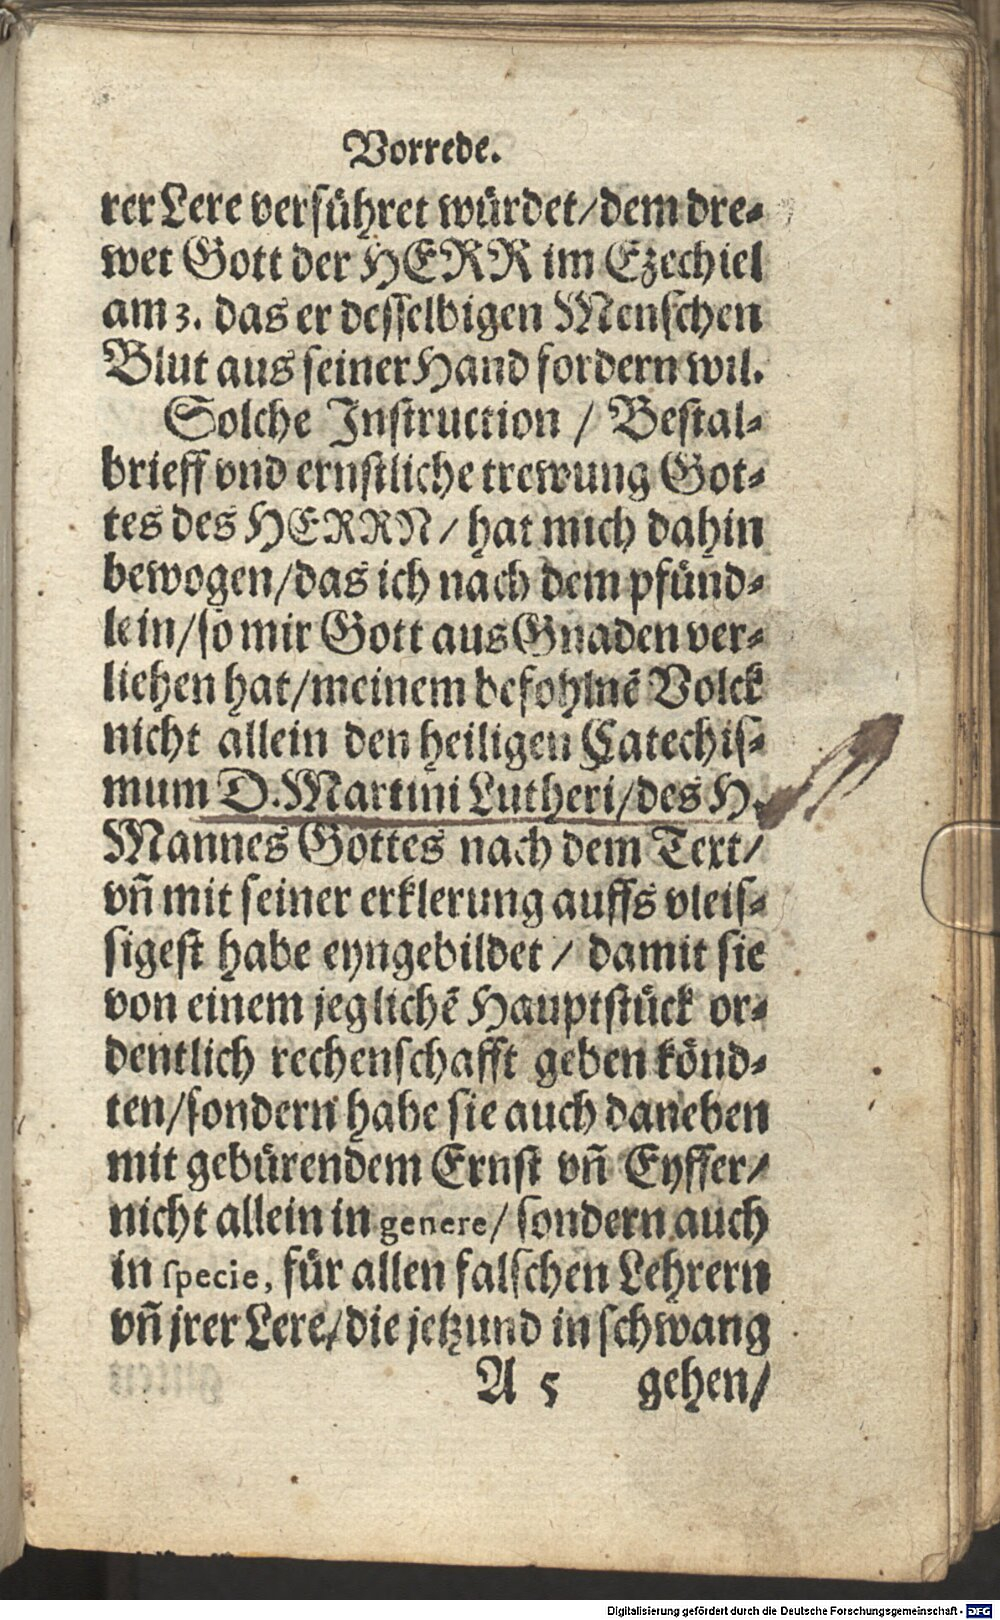 Vorrede.
rer Lere verführet würdet/dem dre⸗
wet Gott der HERR im Ezechiel
am 3. das er desselbigen Menschen
Blut aus seiner Hand fordern wil.
Solche Instruction / Bestal⸗
brieff vnd ernstliche trewung Got⸗
tes des HERRN/ hat mich dahin
bewogen/das ich nach dem pfünd⸗
lein/so mir Gott aus Gnaden ver⸗
liehen hat/meinem befohlnē Volck
nicht allein den heiligen Catechis⸗
mum D. Martini Lutheri/des H.
Mannes Gottes nach dem Text/
vn̄ mit seiner erklerung auffs vleis⸗
sigest habe eyngebildet / damit sie
von einem jeglichē Hauptstück or⸗
dentlich rechenschafft geben könd⸗
ten/sondern habe sie auch daneben
mit gebürendem Ernst vn̄ Eyffer/
nicht allein in genere/ sondern auch
in specie, für allen falschen Lehrern
vn̄ jrer Lere/die jetzund in schwang
A 5 gehen/
Digitalisierung gefördert durch die Deutsche Forschungsgemeinschaft - DFG